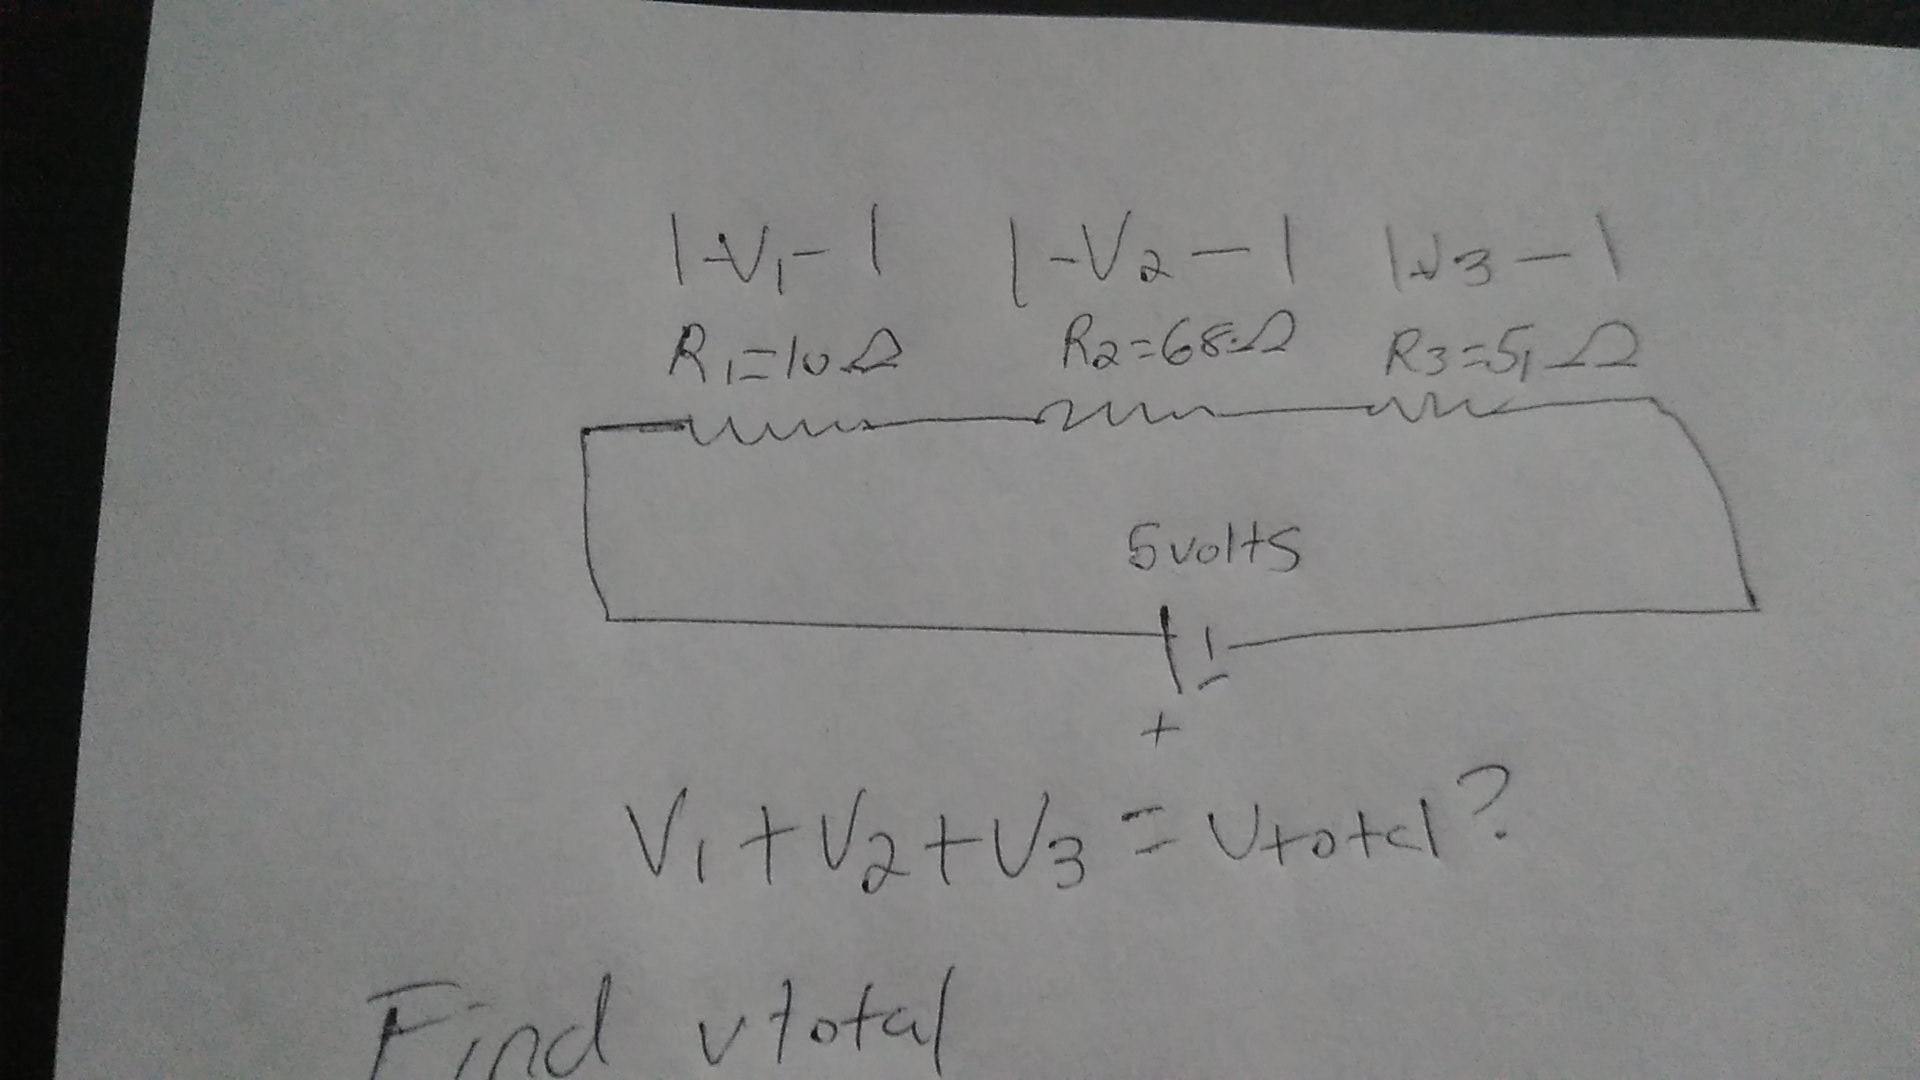 |-V1-| |-V2-| |-V3-|
R1=10Ω R2=68Ω R3=51Ω
5volts
+ -
V1+V2+V3=Vtotal?
Find vtotal